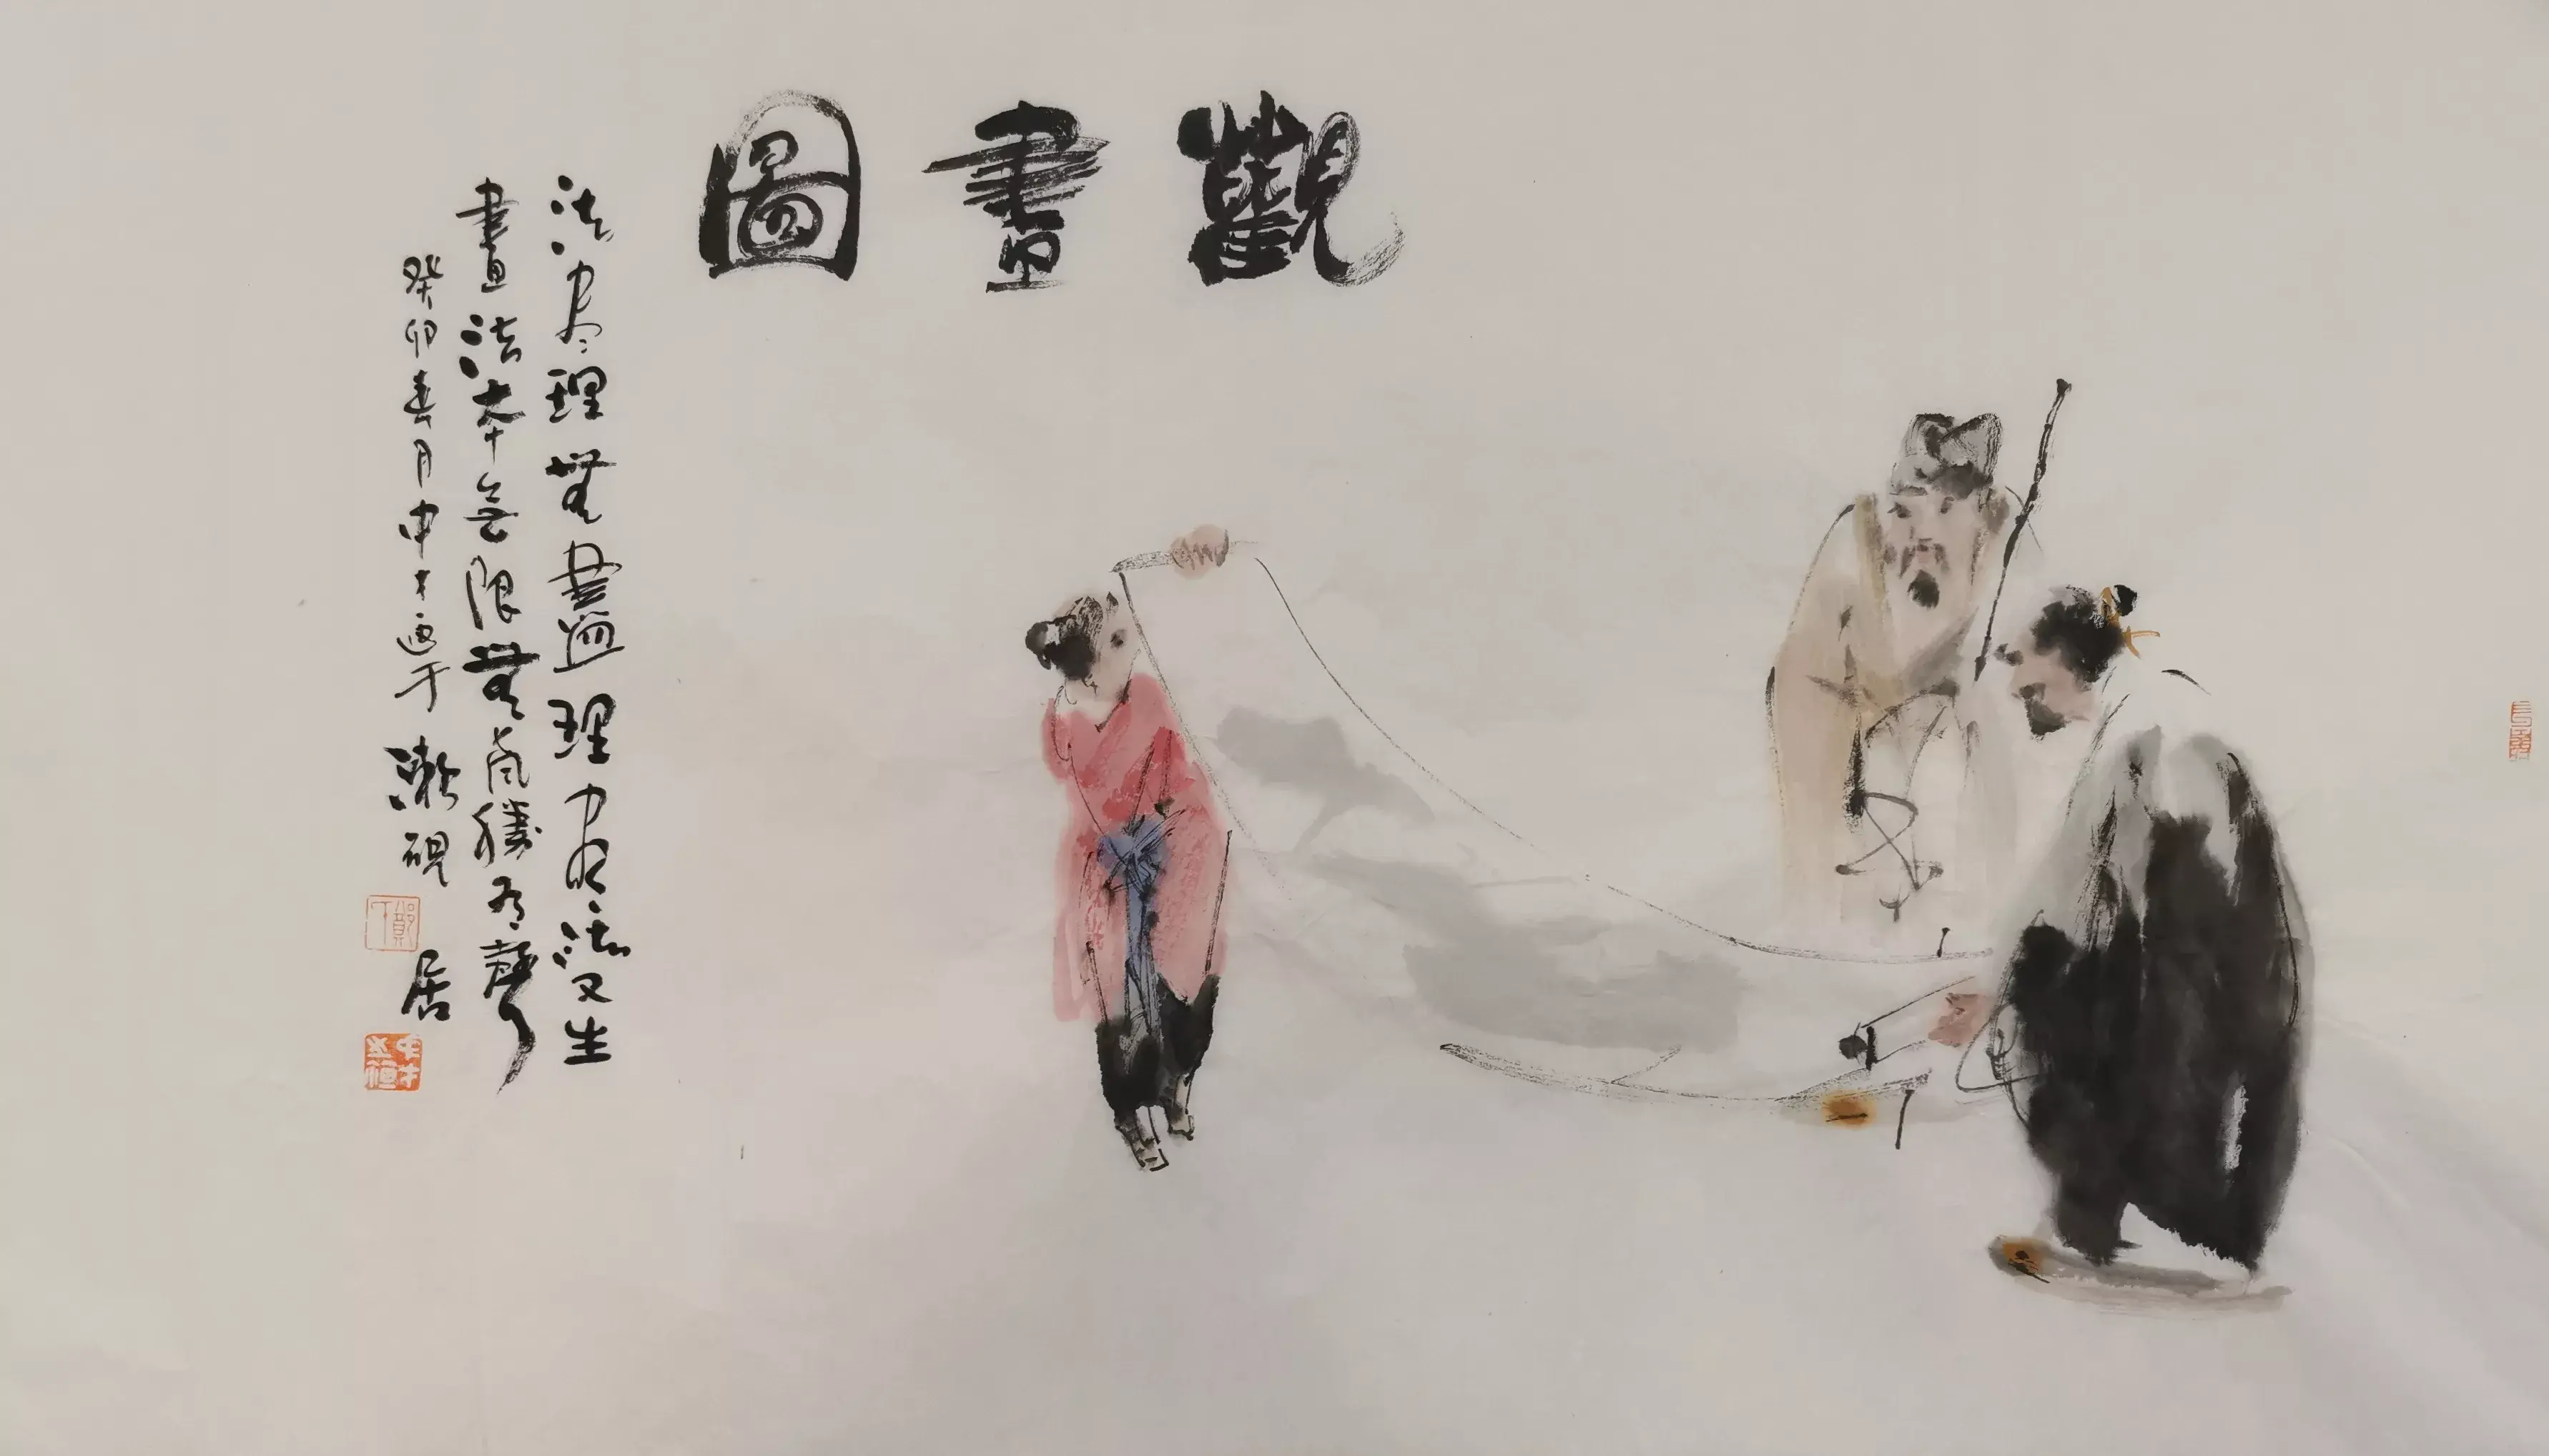 觀畫圖
法尽理無盡理尽法又生
畫法本無限無声勝有聲
癸卯春月中才画于漱硯居